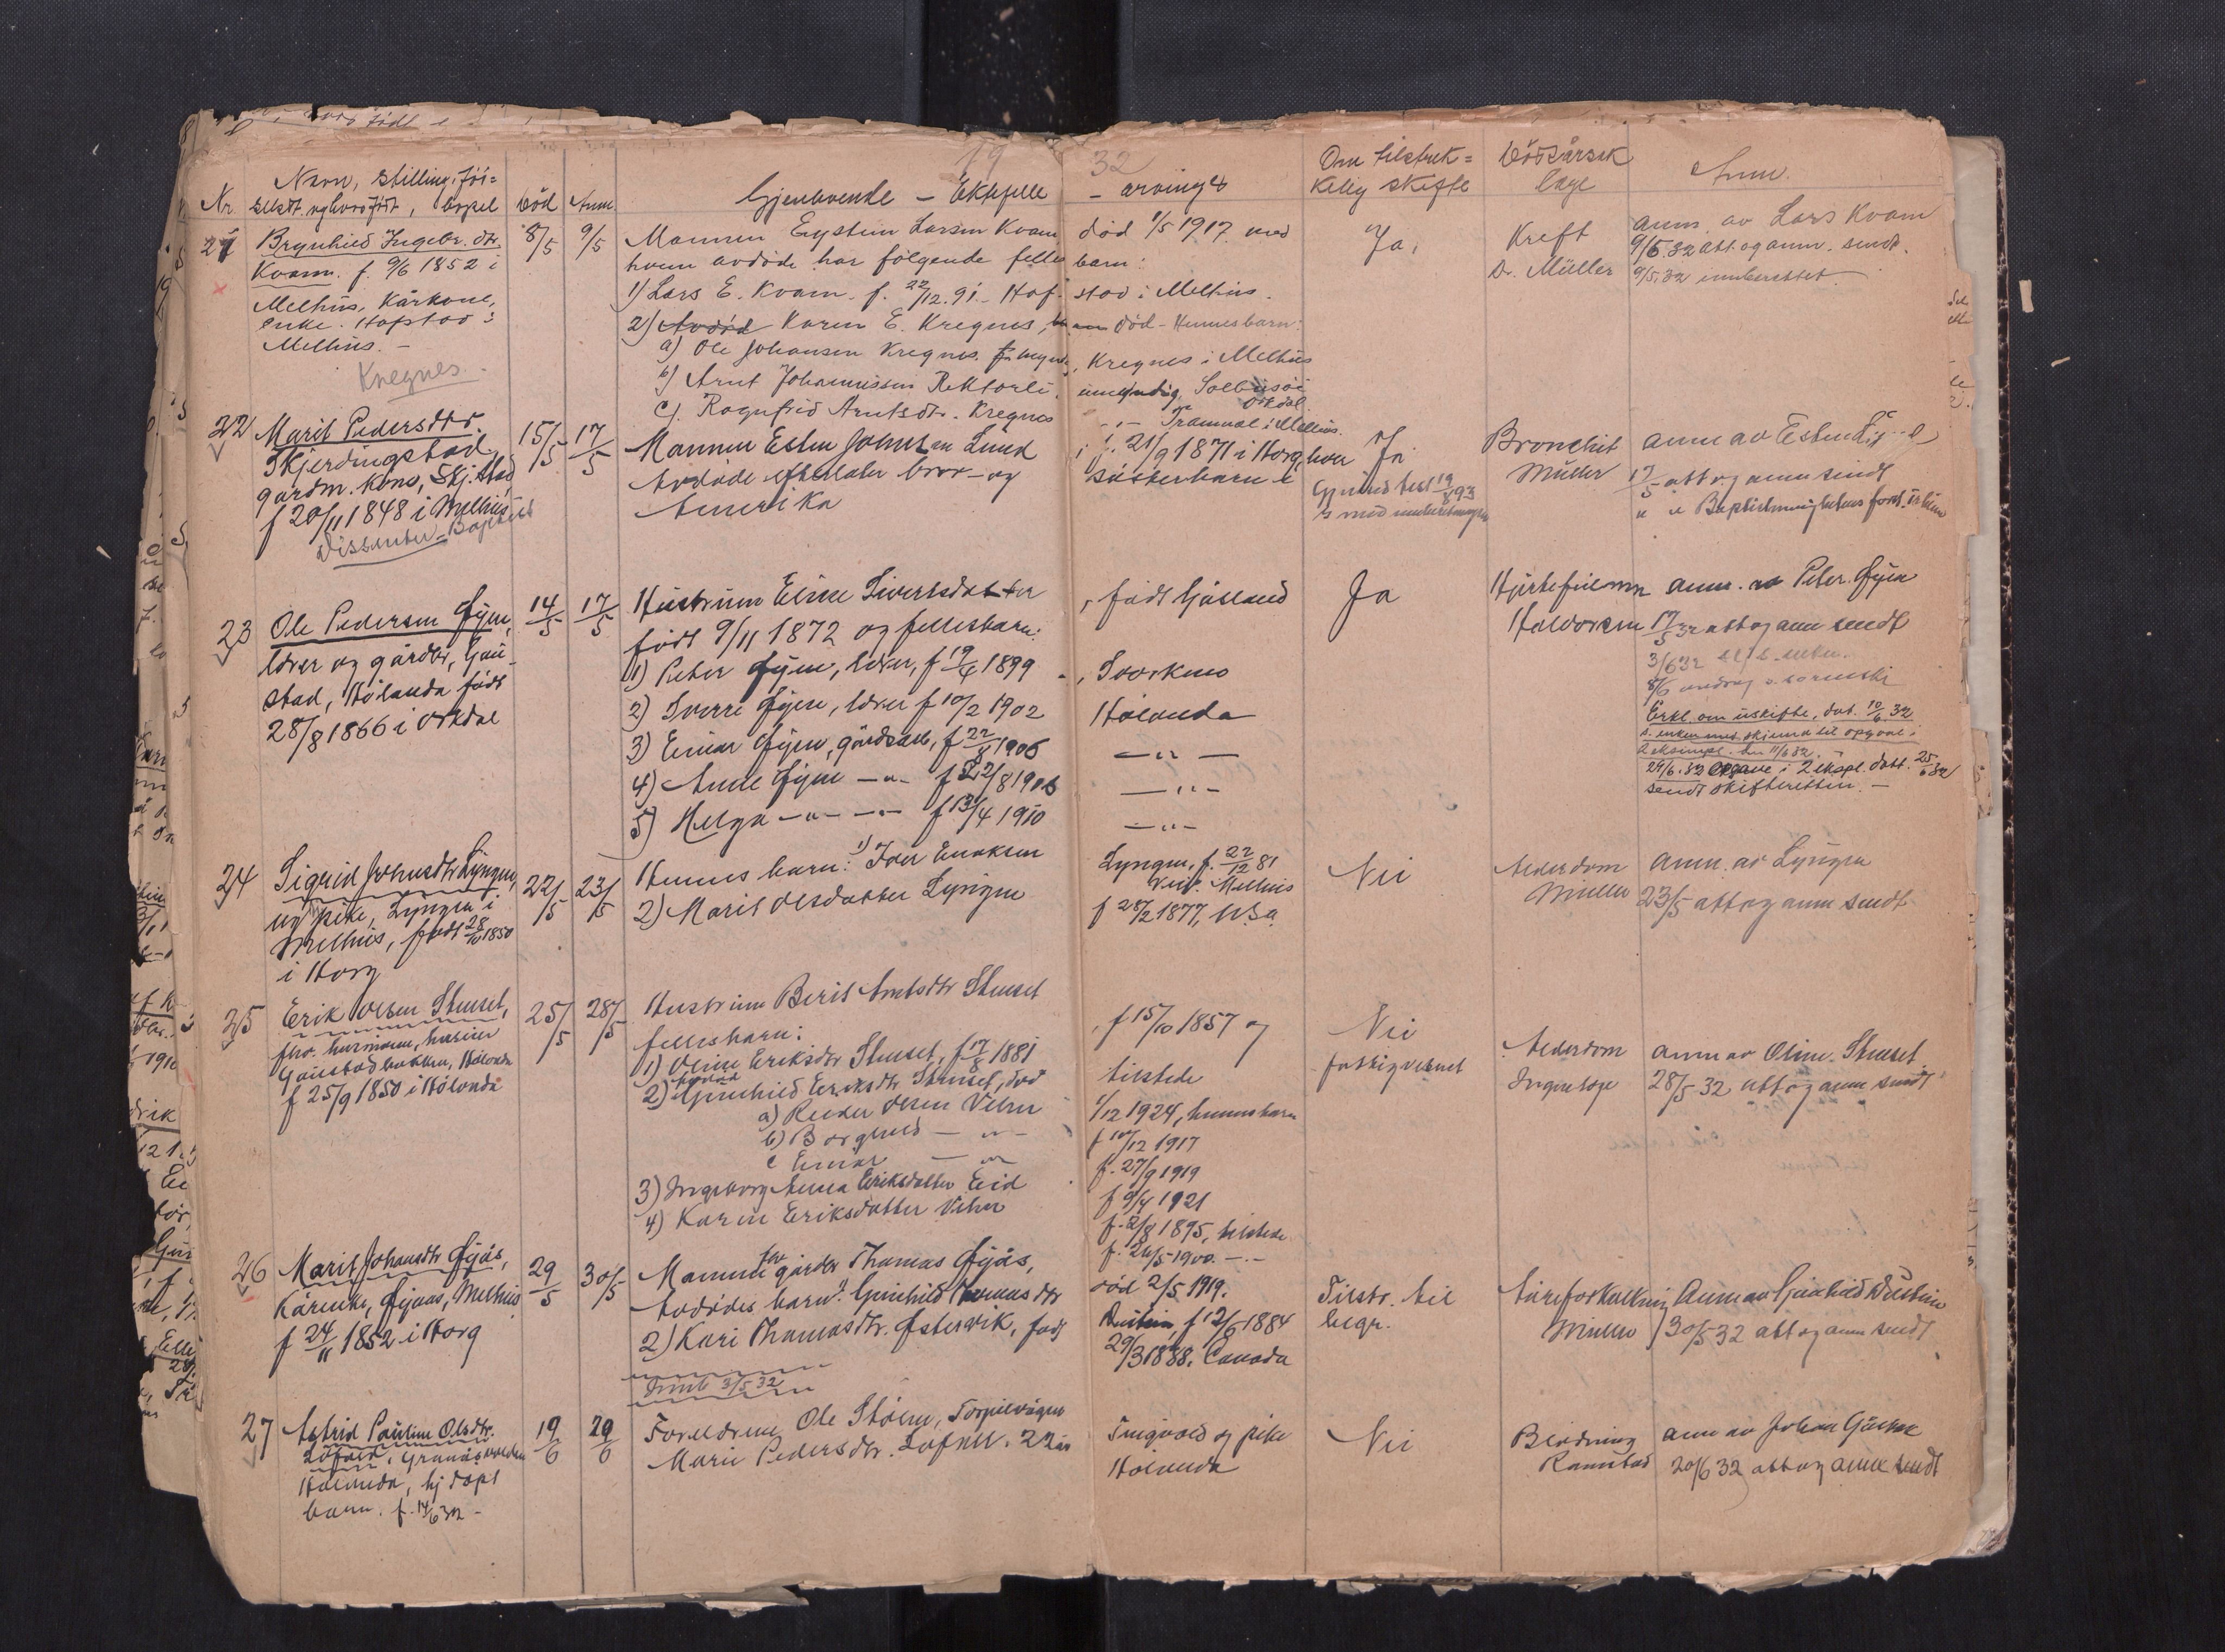 19 32
Nr. Navn, stilling, föd- selsdt. og hvor födt, bopel
Död Anm
Gjenlevende – Ektefelle – arvinger
Om tilstrek- kelig skifte
Dödsårsak läge
Anm.
21 Brynhild Ingebr. dtr.
Kvam. f. 9/6 1852 i
Melhus, Kårkone,
enke. Hofstad i
Melhus. –
Kregnes.
8/5 9/5
Mannen Eystein Larsen Kvam död 1/5 1917 med
hvem avdöde har fölgende felles barn:
1) Lars E. Kvam f. 22/12.91. Hofstad i Melhus.
2) Avdöd Karen E. Kregnes, död – Hennes barn:
a) Ole Johansen Kregnes, Kregnes i Melhus
b) Arnt Johannissen Rektorli, umyndig, Solbusöi Orkdal
c) Ragnfrid Arntsdtr. Kregnes –"– Tranmæl i Melhus.
Ja.
Kreft
Dr. Müller
Anm. av Lars Kvam
9/5.32 att. og anm. sendt.
9/5.32 innberettet.
22 Marit Pedersdtr.
Skjerdingstad
gardm. kone, Skj.stad
f 20/11 1848 i Melhus
Dissenter – Baptist
15/5 17/5
Mannen Esten Johnsen Lund f. 21/9 1871 i Horg, hvem
Avdöde efterlater bror- og søsterbarn i
Amerika
Ja
Gjensid. test 19/8 93
Bronchit
Müller
anm av Esten
17/5 att og anm sendt
" " Baptistmenighetens forst.
23 Ole Pedersen Øyen,
lærer og gårdbr, Gau-
stad, Hölanda födt
28/8 1866 i Orkdal
14/5 17/5
Hustruen Eline Sivertsdatter, född Gåsland
födt 9/11 1872 og fellesbarn:
1) Peter Øyen, lærer, f 19/6 1899 – , Svorkmo
2) Sverre Øyen, lærer f 10/2 1902 Hölanda
3) Einar Øyen, gårdsarb, f 22/8 1906 –"–
4) Anne Øyen –"– f 22/8 1906 –"–
5) Helga –"– –"– f 13/4 1910 –"–
Ja
Hjertefeil
Haldorsen
anm. av Peter Øyen
17/5 32 att og anm sendt
Erkl. om uskifte, dat. 10/6 32
2 eksempl. den 11/6 32.
29/6.32 Opgave i 2 ekspl. datt. 25/6 32
sendt skifteretten. –
24 Sigrid Johnsdtr Lyngen,
ug pike, Lyngen i
Melhus, födt 28/10 1850
i Horg
22/5 23/5
Hennes barn: 1) Iver Eriksen Lyngen, f. 22/12 81
Melhus
2) Marit Olsdatter Lyngen f 28/2 1877, U.S.A.
Nei
Alderdom
Müller
Anm. av Lyngen
23/5 att og anm sendt
25 Erik Olsen Stenset,
fhv. husmann,
Gaustadbakken, Hölonda
f 25/9 1850 i Hölonda
25/5 28/5
Hustruen Berit Arntsdtr Stenset, f 15/10 1857 og
fellesbarn:
1) Oline Eriksdtr Stenset, f 17/8 1881 tilstede
2) Gunhild Eriksdtr Stenset, död 1/12 1924, hennes barn
a) Reidar Olsen Vehn f 10/12 1917
b) Borghild –"– f. 27/9 1919
c Einar –"– f 9/4 1921
3) Ingeborg Anna Eriksdatter Eid f. 2/8 1895, tilstede
4) Karen Eriksdatter Vehn f. 24/5 1900. –"–
Nei
fattigvesenet
Alderdom
Ingen läge
anm av Oline Stenset
28/5 32 att og anm sendt
26 Marit Johansdtr Øyås,
Kårenke, Øyaas, Melhus
f 24/11 1852 i Horg
29/5 30/5
Mannen fhv gårdbr Thomas Øyås, död 2/5 1919.
Avdödes barn: 1) Gunhild Thomasdtr Dustein, f 12/6 1884
2) Kari Thomasdtr. Østervik, födt 29/3 1888. Canada
Innb 31/5 32
Tilstr. til
begr.
Åreforkalkning
Müller
Anm av Gunhild Dustein
30/5 32 att og anm sendt
27 Astrid Pauline Olsdtr.
Löfald, Granåsvolden
Hölonda, hj döpt
barn. f. 14/6 32 –
19/6 20/6
Foreldrene Ole Stölen, Torpilvågen Tingvold og pike
Marie Pedersdtr. Löfald. 22 år Hölanda
Nei
Blödning
Ramstad
anm av Johan
20/6 32 att og anm sendt